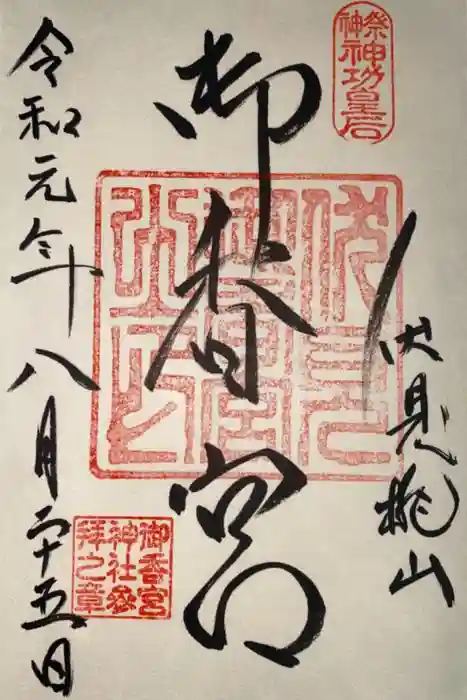 祭神
神功皇后
伏見桃山
御香宮
御香宮
神社參
拝之章
令和元年八月二十五日